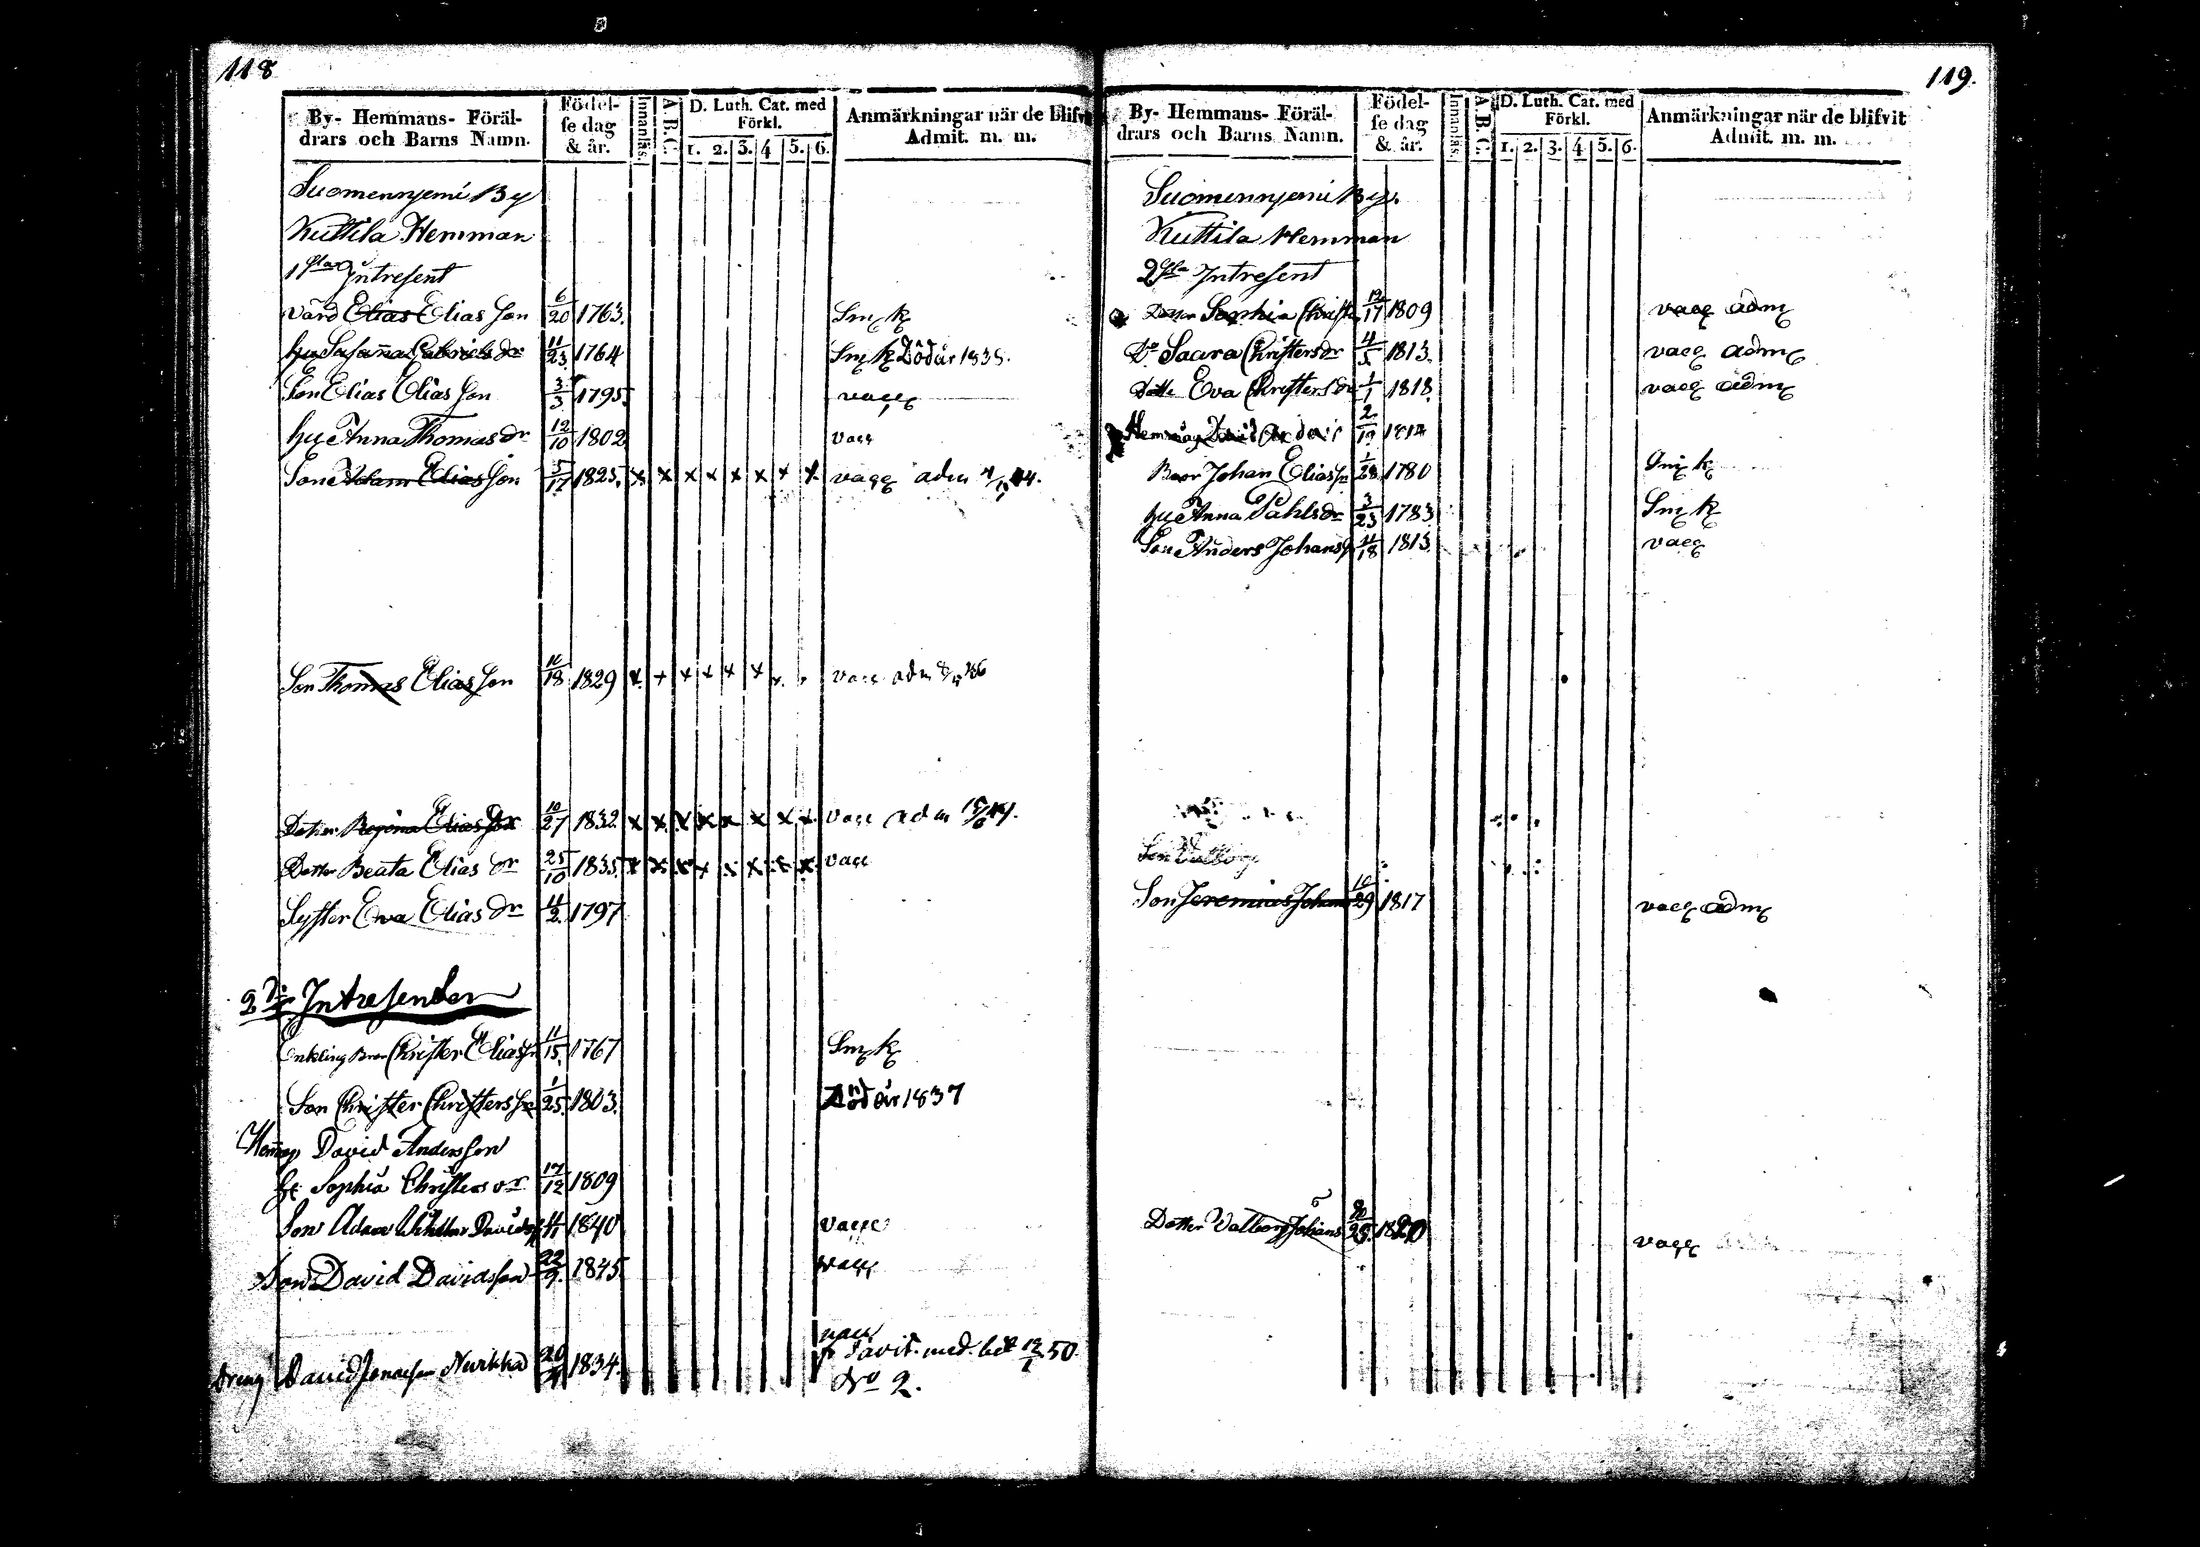 118
By- Hemmans- Föräl-
drars och Barns Namn.
Födel-
se dag
& år.
Innanläs.
A.B.C.
D. Luth. Cat. med
Förkl.
1. 2. 3. 4 5. 6.
Anmärkningar när de blifvit
Admit. m. m.
Suomennjemi By
Kuttila Hemman
1sta Intresent
Värd Elias Elias Son 6/20 1763. Sm k
hu Susanna Gabriels dr 11/23 1764 Sm k Död år 1838.
Son Elias Elias Son 3/3 1795 vacc
hu Anna Thomas dr 12/10 1802 vacc
Son Adam Elias Son 5/17 1825. x x x x x x x x vacc adm 44.
Son Thomas Elias Son 18 1829 x + x x x x vacc adm 46
Dotter Regina Elias 10/27 1832 x x x x x x x x vacc adm
Dotter Beata Elias dr 25/10 1835 x x x x x x x x vacc
Syster Eva Elias dr 4/2 1797
2 Intresenten
Enkling Bror Christer Elias 11/15 1767 Sm k
Son Christer Christers Son 1/25 1803. Död år 1837
David Andersson
hu Sophia Christers dr 17/12 1809
Son Adam Davids 1840 vacc
Son David Davidsson 22/9. 1845. vacc
vacc
Dreng David Nurkka 20 1834. med bet 12/1 50.
No 2.
119.
By- Hemmans- Föräl-
drars och Barns Namn.
Födel-
se dag
& år.
Innanläs.
A.B.C.
D. Luth. Cat. med
Förkl.
1. 2. 3. 4 5. 6.
Anmärkningar när de blifvit
Admit. m. m.
Suomennjemi By.
Kuttila Hemman
2 Intresent
Sophia Christ 12/17 1809 vacc adm
Do Saara Christers dr 4/5 1813. vacc adm
Dotte Eva Christers dr 1/1 1818. vacc adm
2/19 1814
Bror Johan Elias Sn 1/28 1780 Sm k
hu Anna Påhls dr 3/23 1783 Sm k
Son Anders Johans 18 1813 vacc
Son Valborg
Son Jeremias Johans 10/29 1817 vacc adm
Dotter Valborg Johans 1820 vacc